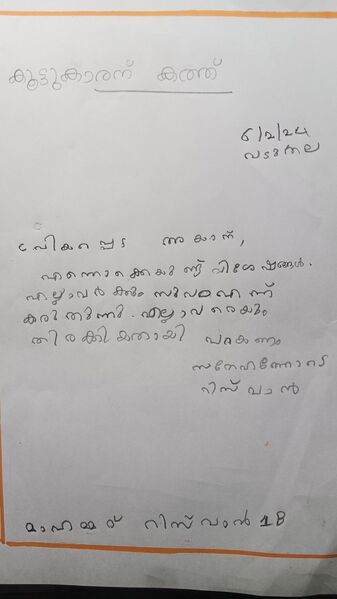 കൂട്ടുകാരന് കത്ത്
6/2/24
വടുതല
പ്രിയപ്പെട്ട അയാന്,
എന്തൊക്കെയുണ്ട് വിശേഷങ്ങൾ.
എല്ലാവർക്കും സുഖമെന്ന്
കരുതുന്നു. എല്ലാവരെയും
തിരക്കിയതായി പറയണം
സ്നേഹത്തോടെ
റിസ് വാൻ
മുഹമ്മദ് റിസ് വാൻ 18